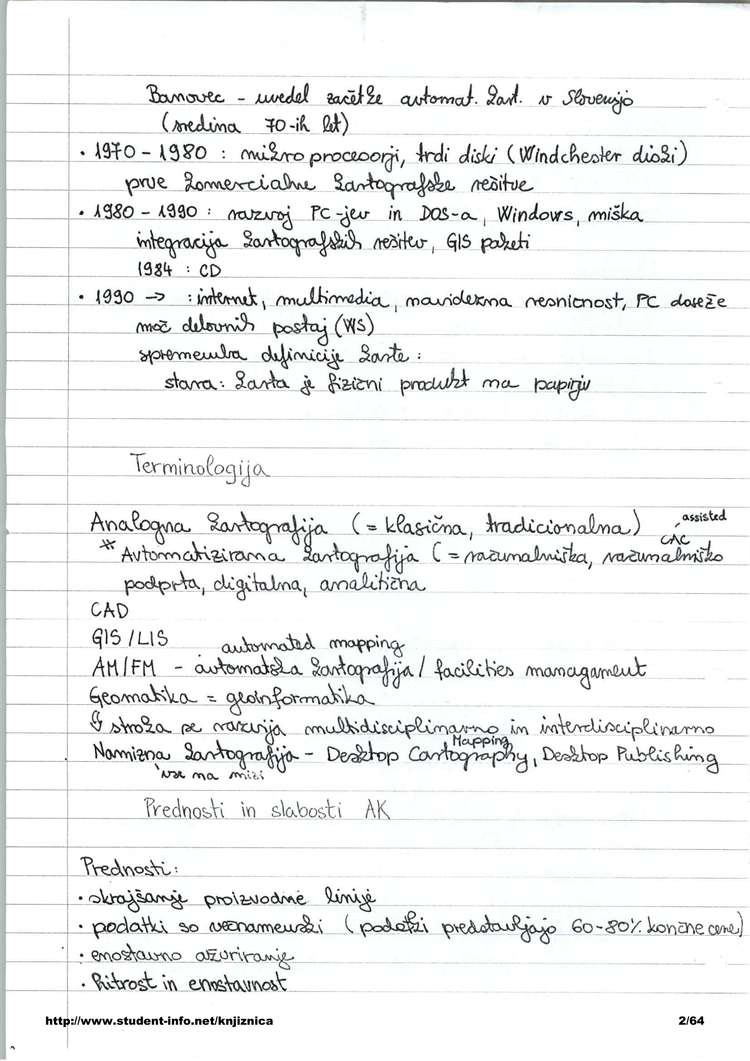 Banovec - uvedel začetke avtomat. kart. v Slovenijo
(sredina 70-ih let)
• 1970 - 1980 : mikro procesorji, trdi diski (Windchester diski)
prve komercialne kartografske rešitve
• 1980 - 1990 : razvoj PC-jev in DOS-a, Windows, miška
integracija kartografskih rešitev, GIS paketi
1984 : CD
• 1990 → : internet, multimedia, navidezna resničnost, PC doseže
moč delovnih postaj (WS)
sprememba definicije karte :
stara : karta je fizični produkt na papirju
Terminologija
Analogna kartografija (= klasična, tradicionalna)
assisted
CAC
* Avtomatizirana kartografija (= računalniška, računalniško
podprta, digitalna, analitična
CAD
GIS / LIS
automated mapping
AM/FM - avtomatska kartografija / facilities managament
Geomatika = geoinformatika
↳ stroka se razvija multidisciplinarno in interdisciplinarno
Mapping
Namizna kartografija - Desktop Cartography, Desktop Publishing
vse na mizi
Prednosti in slabosti AK
Prednosti :
• skrajšanje proizvodne linije
• podatki so večnamenski (podatki predstavljajo 60-80% končne cene)
• enostavno ažuriranje
• hitrost in enostavnost
http://www.student-info.net/knjiznica 2/64